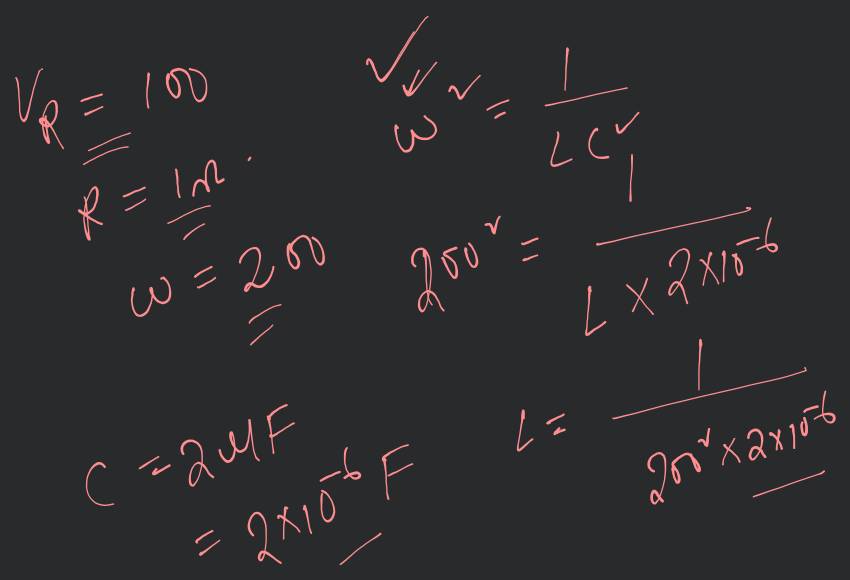 V_R = 100
R = 1Ω
ω = 200
C = 2μF
= 2×10^-6 F
ω² = 1 / LC
200² = 1 / L × 2×10^-6
L = 1 / 200² × 2×10^-6